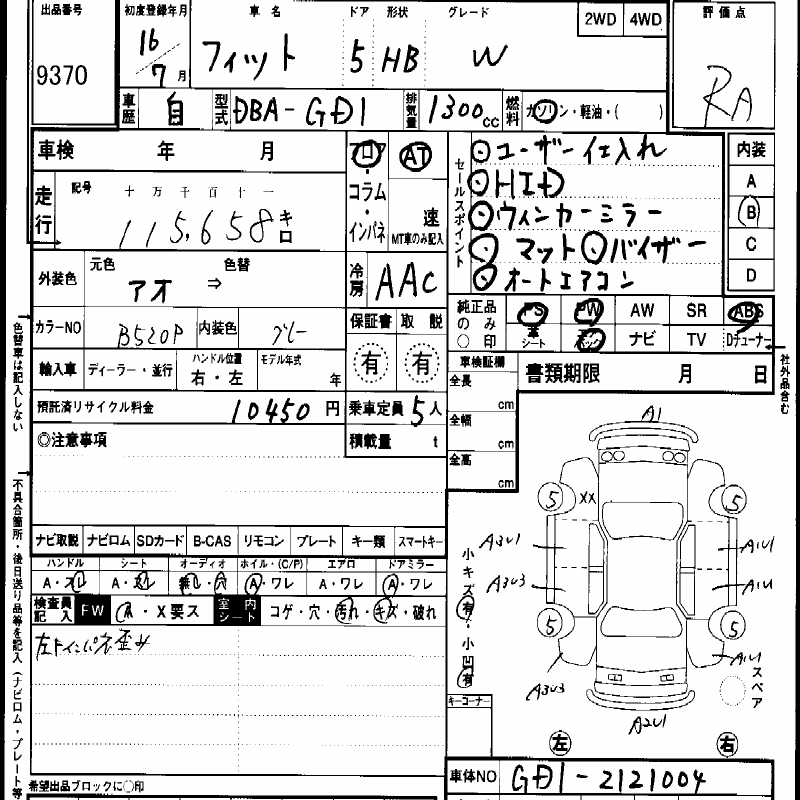 出品番号 9370
初度登録年月 16 / 7月
車名 フィット
ドア 5
形状 HB
グレード W
2WD 4WD
評価点 RA
車歴 自
型式 DBA-GD1
排気量 1300cc
燃料 ガソリン・軽油・( )
車検 年 月
フロア・コラム・インパネ
AT 速
MT車のみ記入
セールスポイント
ユーザー仕入れ
HID
ウィンカーミラー
マット バイザー
オートエアコン
内装
A
B
C
D
走行
記号 十 万 千 百 十 一
115,658 キロ
外装色 元色 アオ ⇒ 色替
冷房 AAC
カラーNO B520P 内装色 グレー
保証書 有
取説 有
純正品のみ○印
PS PW AW SR ABS
革シート エアバック ナビ TV Dチューナー
輸入車 ディーラー・並行
ハンドル位置 右・左
モデル年式 年
車検証欄
全長 cm
全幅 cm
全高 cm
書類期限 月 日
社外品含む
色替車は記入しない
預託済リサイクル料金 10450円
乗車定員 5人
積載量 t
◎注意事項
ナビ取説 ナビロム SDカード B-CAS リモコン プレート キー類 スマートキー
ハンドル シート オーディオ ホイル・(C/P) エアロ ドアミラー
A・スレ A・スレ 無し・穴 A・ワレ A・ワレ A・ワレ
検査員記入 FW A・X要ス 室内シート コゲ・穴・汚れ・キズ・破れ
左下インパネ歪み
不具合箇所・後日送り品等を記入(ナビロム・プレート等
希望出品ブロックに○印
小キズ有・小凹有
キーコーナー
A1
5 XX 5
A3U1 A1U1
A3U3 A1U1
5 5
A3U3 A1U1
A2U1
スペア
左 右
車体NO GD1-2121004